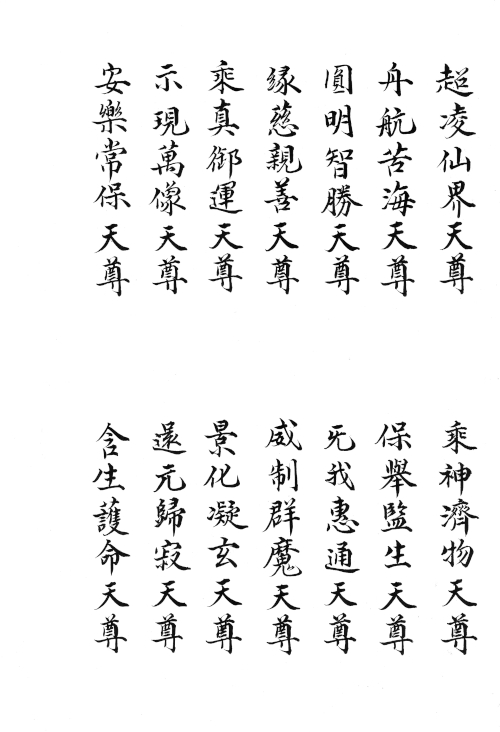 超凌仙界天尊
舟航苦海天尊
圓明智勝天尊
緣慈親善天尊
乘真御運天尊
示現萬儀天尊
安樂常保天尊
乘神濟物天尊
保舉監生天尊
旡我惠通天尊
威制群魔天尊
景化凝玄天尊
還元歸寂天尊
含生護命天尊